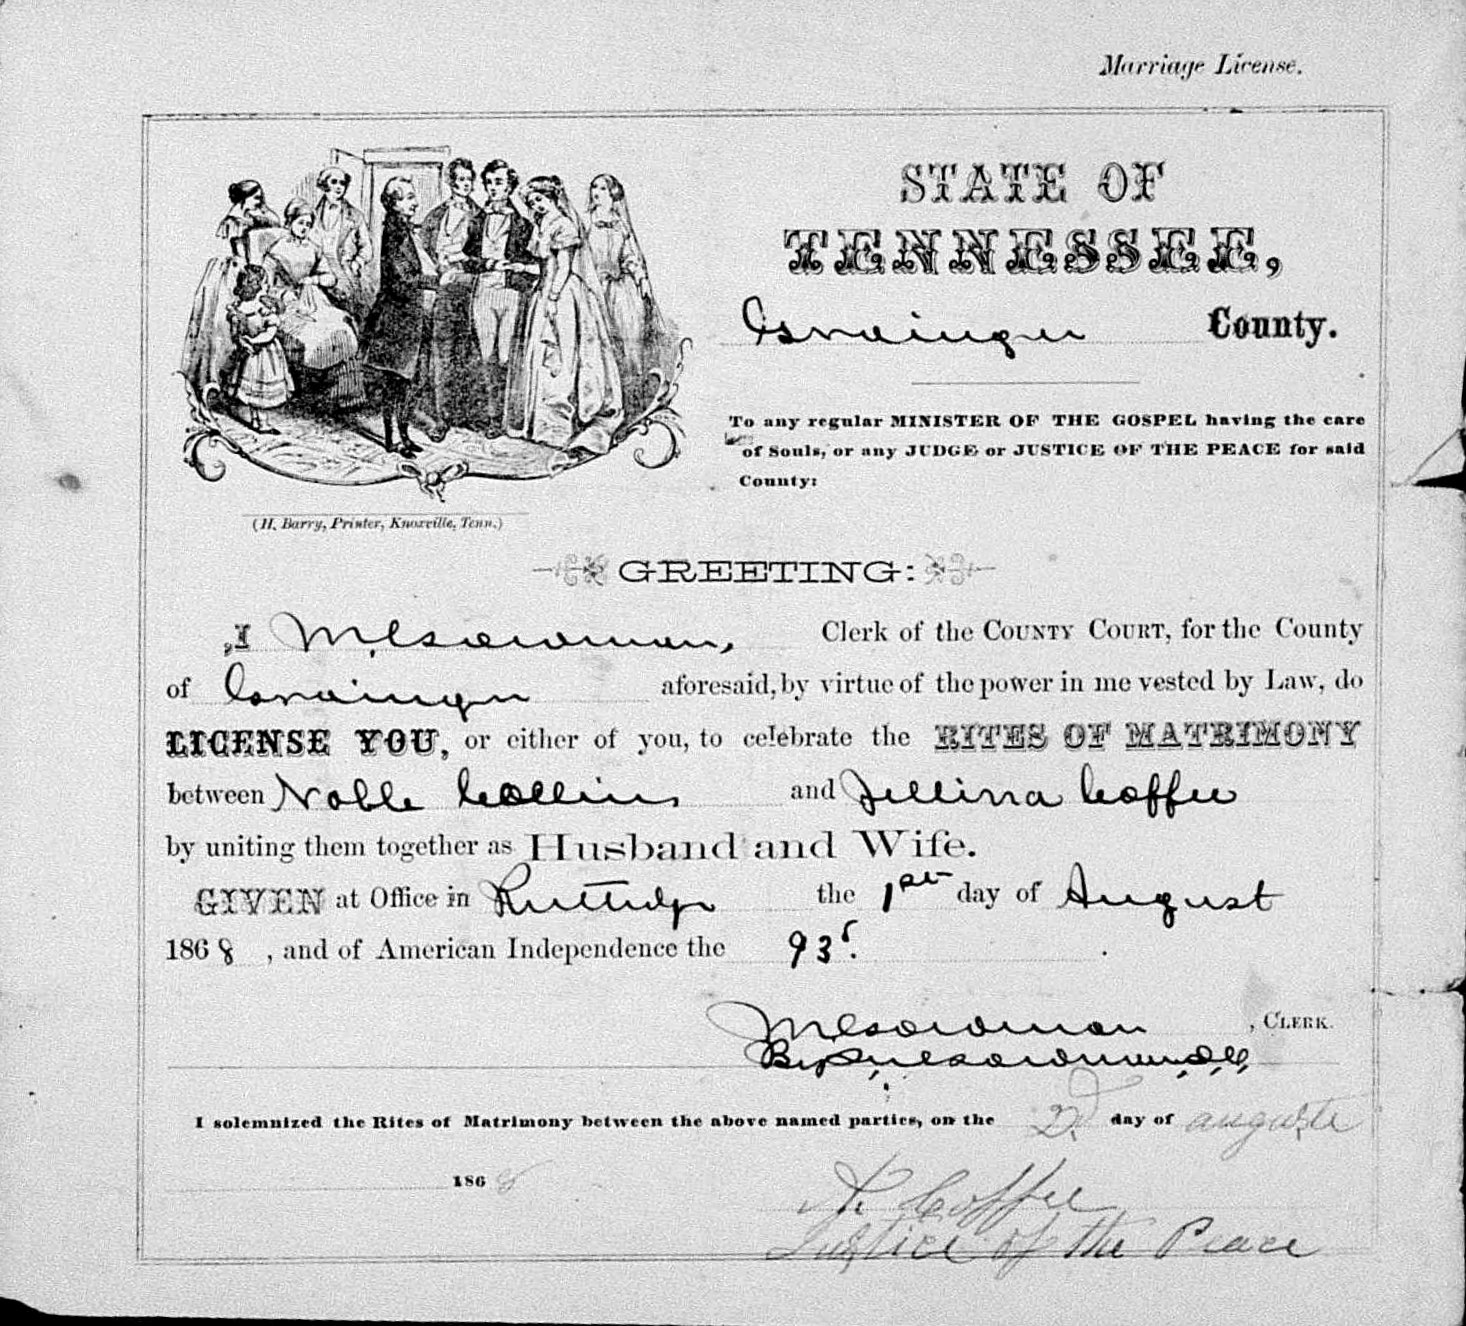 Marriage License.
STATE OF
TENNESSEE,
Grainger County.
To any regular MINISTER OF THE GOSPEL having the care
of Souls, or any JUDGE or JUSTICE OF THE PEACE for said
County:
(H. Barry, Printer, Knoxville, Tenn.)
GREETING:
I M. Goodman, Clerk of the COUNTY COURT, for the County
of Grainger aforesaid, by virtue of the power in me vested by Law, do
LICENSE YOU, or either of you, to celebrate the RITES OF MATRIMONY
between Noble Collins and Coffee
by uniting them together as Husband and Wife.
GIVEN at Office in Rutledge the 1st day of August
1868, and of American Independence the 93
, CLERK.
I solemnized the Rites of Matrimony between the above named parties, on the 2d. day of auguste
1868
Coffee
Justice of the Peace